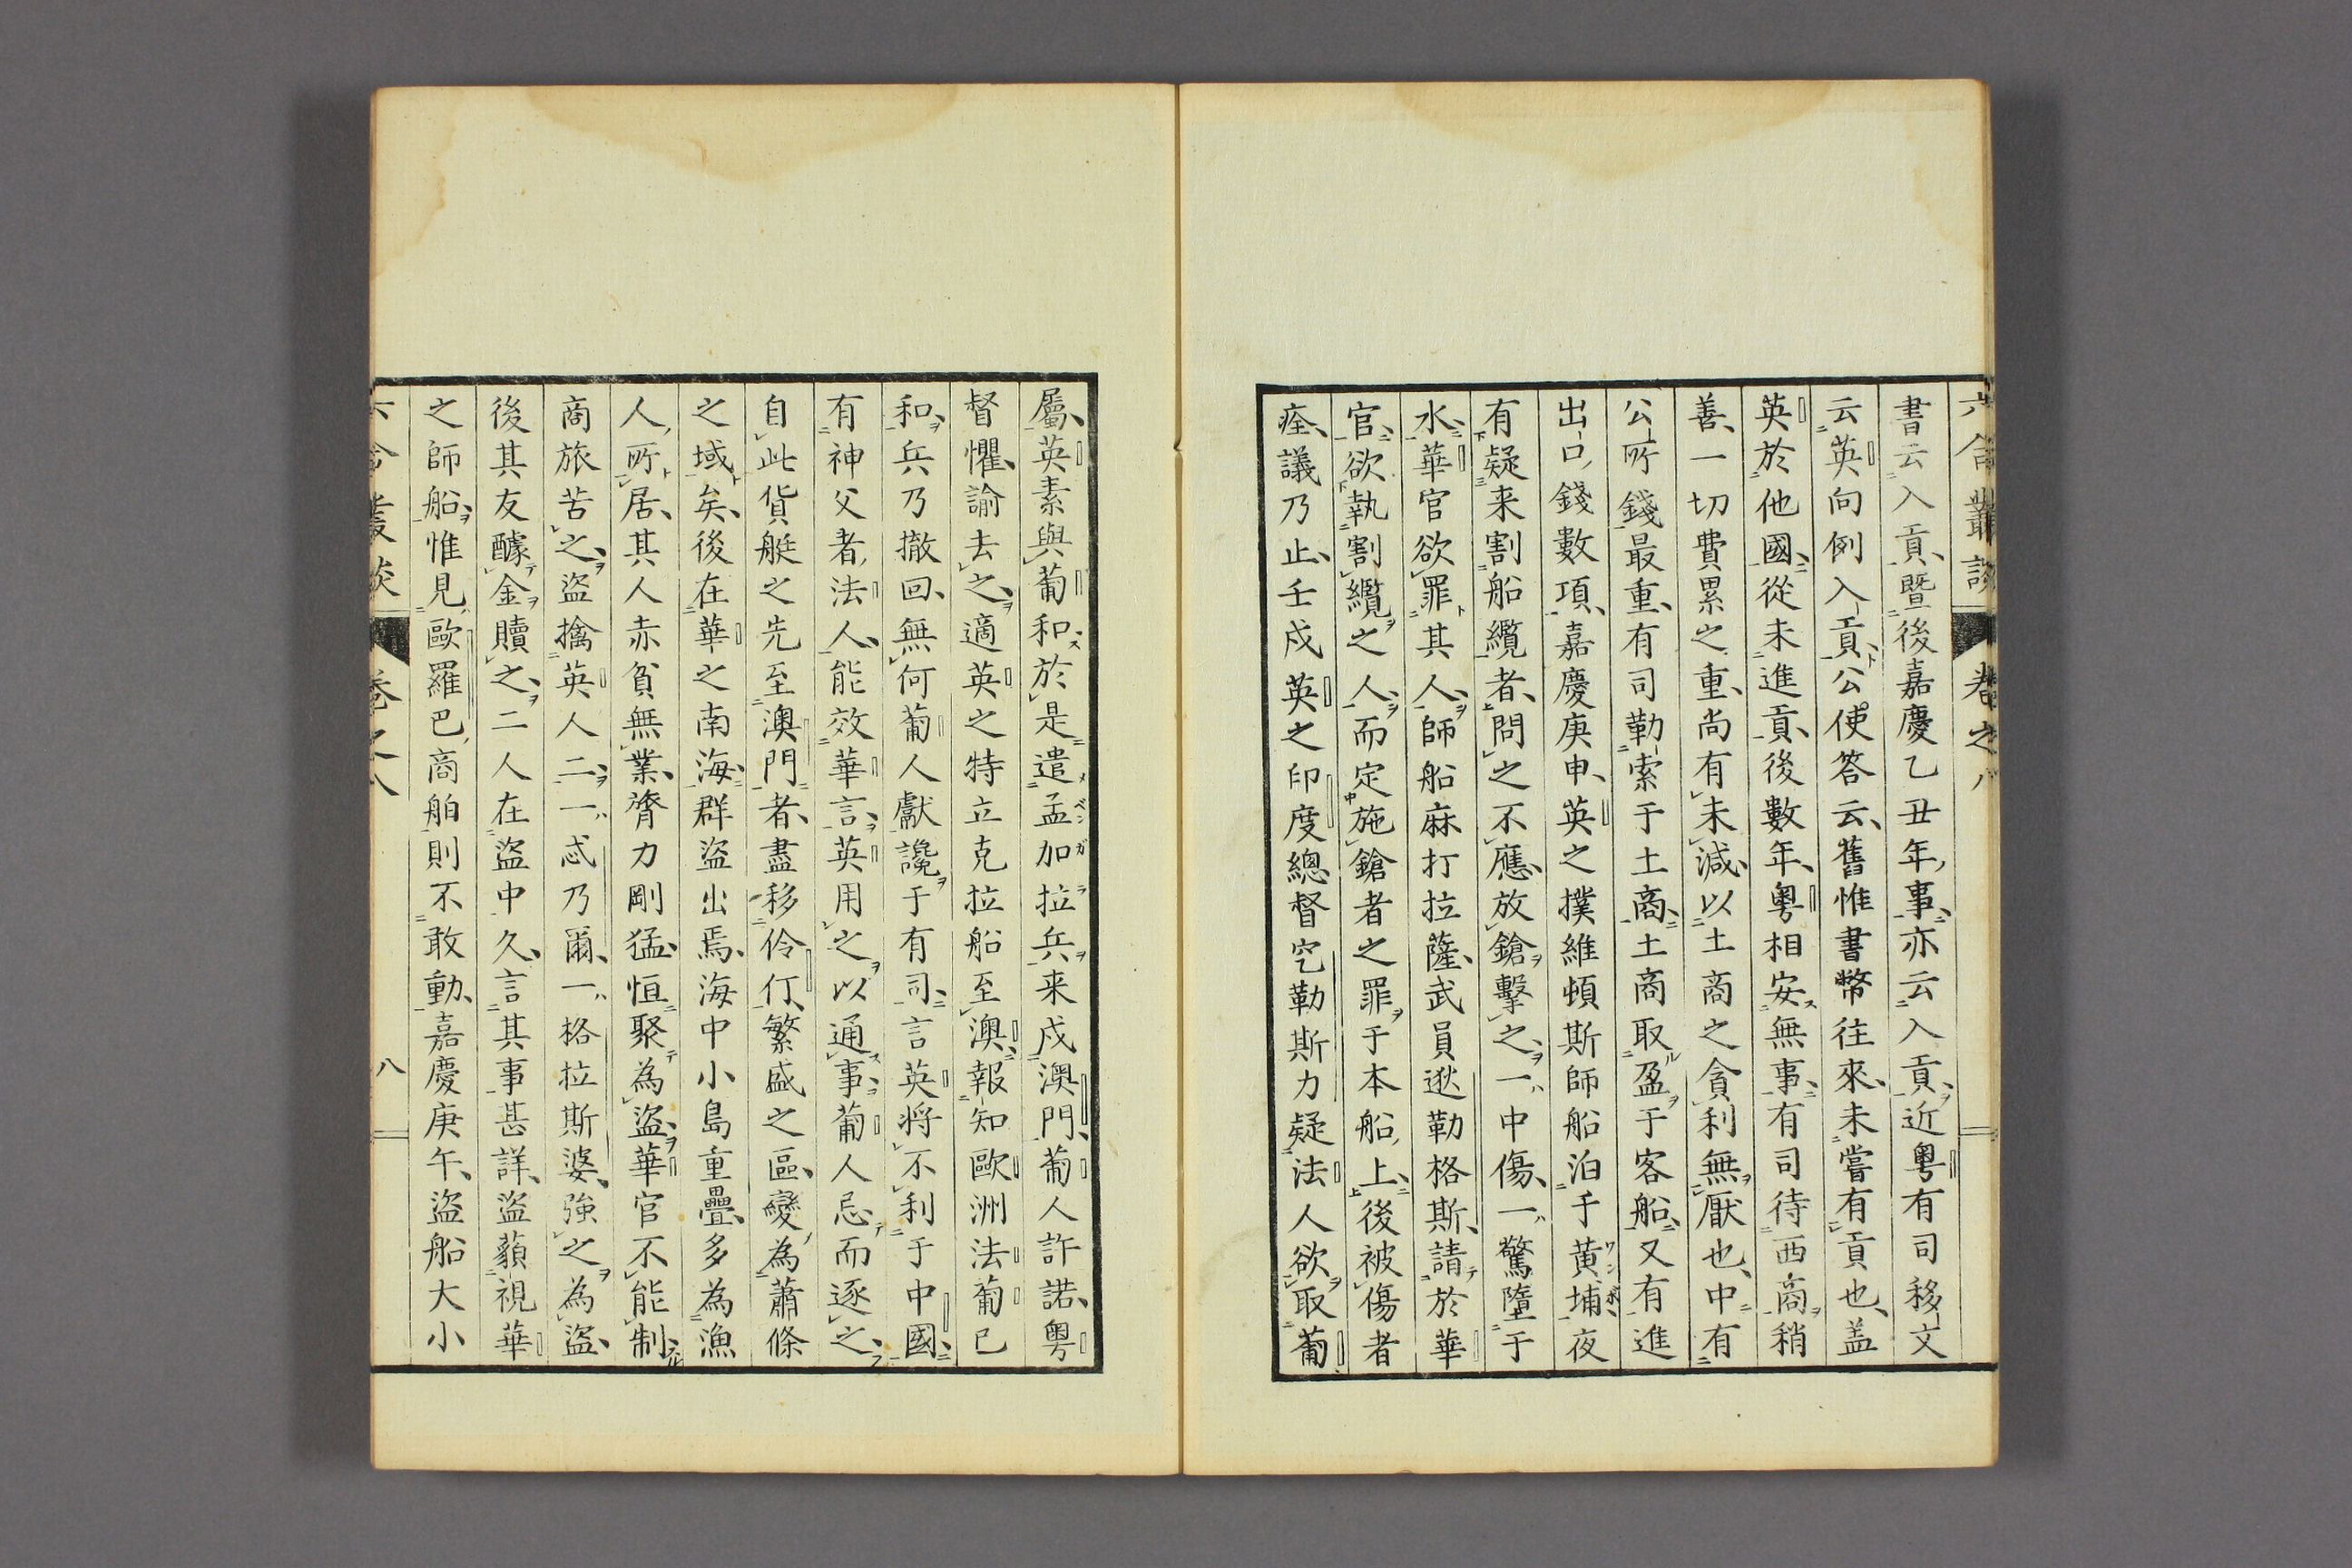 六合叢談 卷之八
書云入貢、暨後嘉慶乙丑年、事、亦云入貢、近粵有司移文
云英向例入貢、公使答云、舊惟書幣往來、未嘗有貢也、盖
英於他國、從未進貢、後數年、粵相安無事、有司待西商稍
善、一切費累之重、尚有未減、以土商之貪利無厭也、中有
公所錢最重、有司勒索于土商、土商取盈于客船、又有進
出口、錢數項、嘉慶庚申、英之撲維頓斯師船泊于黄埔、夜
有疑来割船纜者、問之不應、放鎗擊之、一中傷、一驚墮于
水、華官欲罪其人、師船麻打拉薩、武員逖勒格斯、請於華
官、欲執割纜之人、而定施鎗者之罪、于本船、上、後被傷者
痊、議乃止、壬戍英之印度總督窆勒斯力疑法人欲取葡
屬、英素與葡和於是遣孟加拉兵来戍澳門、葡人許諾、粵
督懼、諭去之、適英之特立克拉船至澳、報知歐洲法葡已
和、兵乃撤回、無何葡人獻讒于有司、言英将不利于中國、
有神父者、法人、能效華言、英用之以通事、葡人忌而逐之、
自此貨艇之先至澳門者、盡移伶仃、繁盛之區、變為蕭條
之域矣、後在華之南海、群盜出焉、海中小島重疊、多為漁
人、所居、其人赤貧無業、膂力剛猛、恒聚為盜、華官不能制、
商旅苦之、盜擒英人二、一忒乃爾、一格拉斯婆、強之為盜、
後其友醵金贖之、二人在盜中久、言其事甚詳、盜藐視華
之師船、惟見歐羅巴、商舶則不敢動、嘉慶庚午、盜船大小
六合叢談 卷之八 八